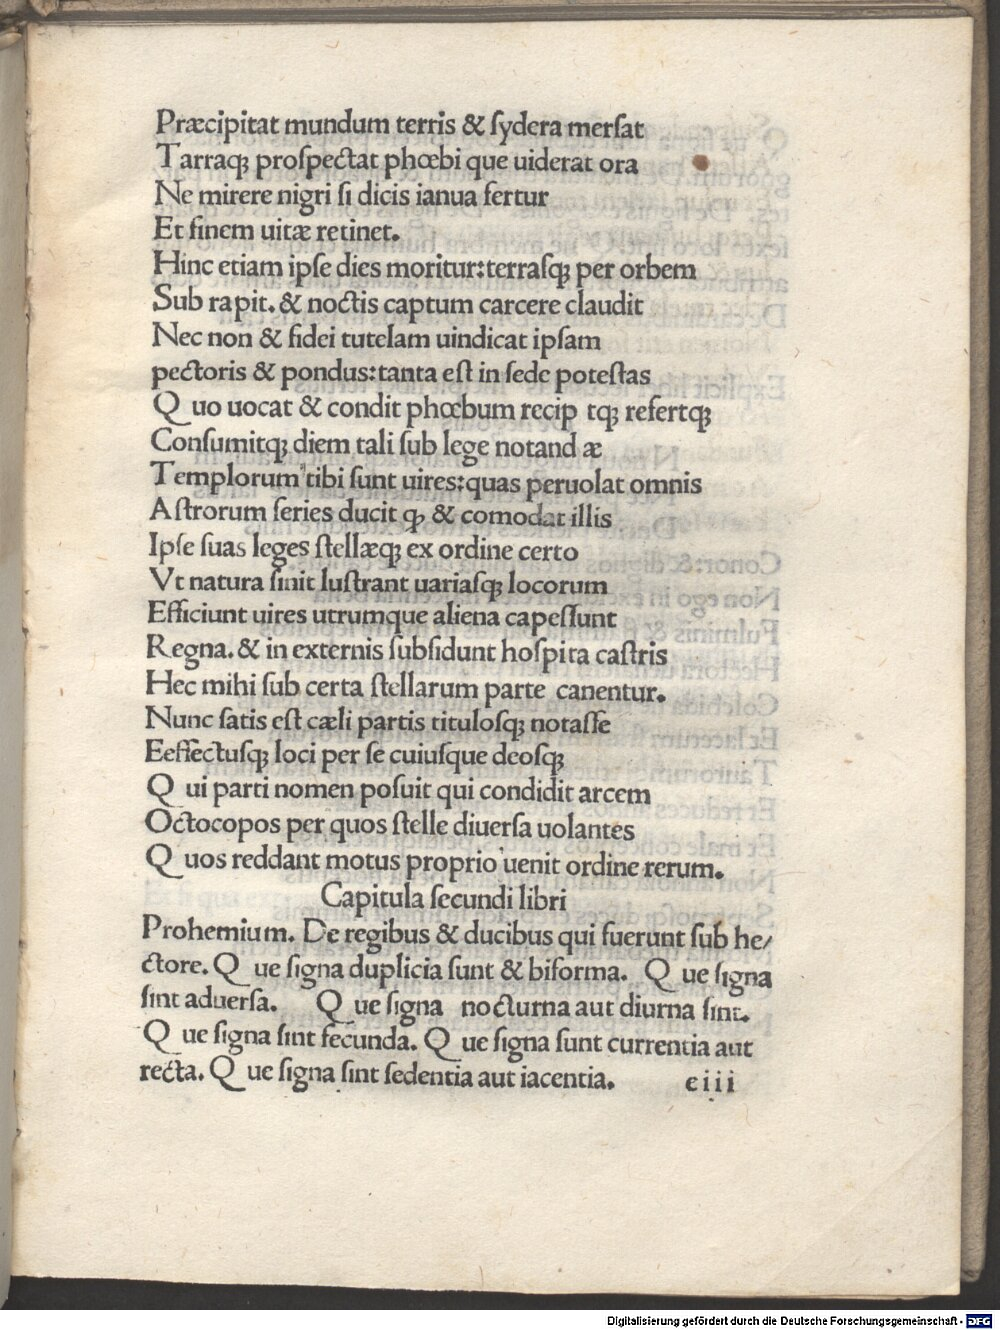 Præcipitat mundum terris & ſydera merſat
Tarraqꝫ proſpectat phœbi que uiderat ora
Ne mirere nigri ſi dicis ianua fertur
Et finem uitæ retinet.
Hinc etiam ipſe dies moritur:terraſqꝫ per orbem
Sub rapit. & noctis captum carcere claudit
Nec non & fidei tutelam uindicat ipſam
pectoris & pondus:tanta eſt in ſede poteſtas
Q uo uocat & condit phœbum recip tqꝫ refertqꝫ
Conſumitqꝫ diem tali ſub lege notand æ
Templorum tibi ſunt uires:quas peruolat omnis
Aſtrorum ſeries ducit qꝫ & comodat illis
Ipſe ſuas leges ſtellæqꝫ ex ordine certo
Vt natura ſinit luſtrant uariaſqꝫ locorum
Efficiunt uires utrumque aliena capeſſunt
Regna. & in externis ſubſidunt hoſpita caſtris
Hec mihi ſub certa ſtellarum parte canentur.
Nunc ſatis eſt cæli partis tituloſqꝫ notaſſe
Eeffectuſqꝫ loci per ſe cuiuſque deoſqꝫ
Q ui parti nomen poſuit qui condidit arcem
Octocopos per quos ſtelle diuerſa uolantes
Q uos reddant motus proprio uenit ordine rerum.
Capitula ſecundi libri
Prohemium. De regibus & ducibus qui fuerunt ſub he/
ctore. Q ue ſigna duplicia ſunt & biforma. Q ue ſigna
ſint aduerſa. Q ue ſigna nocturna aut diurna ſint.
Q ue ſigna ſint fecunda. Q ue ſigna ſunt currentia aut
recta. Q ue ſigna ſint ſedentia aut iacentia. eiii
Digitalisierung gefördert durch die Deutsche Forschungsgemeinschaft - DFG